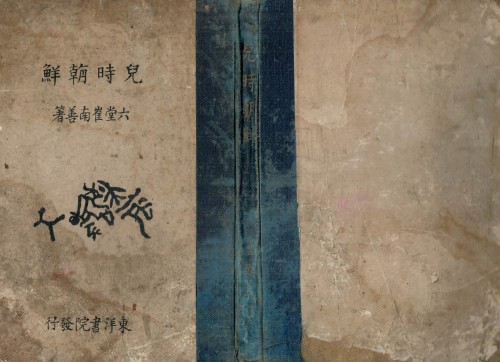 兒時朝鮮
六堂崔南善著
東洋書院發行